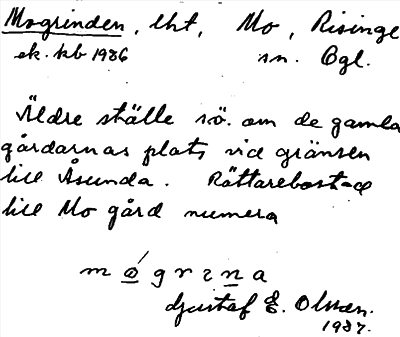 Mogrinden, lht, Mo, Risinge
ek. kb 1936 sn. Ögl.
Äldre ställe sö. om de gamla
gårdarnas plats vid gränsen
till Åsunda. Rättarebostad
till Mo gård numera
Gustaf E. Olsson.
1937.